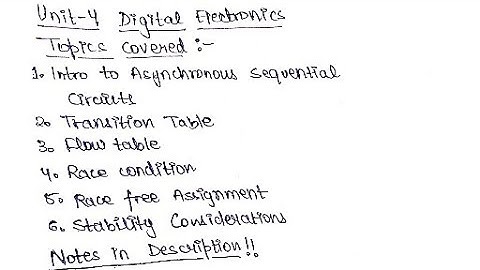 Unit-4 Digital Electronics
Topics covered :-
1. Intro to Asynchronous sequential
Circuits
2. Transition Table
3. Flow table
4. Race condition
5. Race free Assignment
6. Stability Considerations
Notes in Description!!